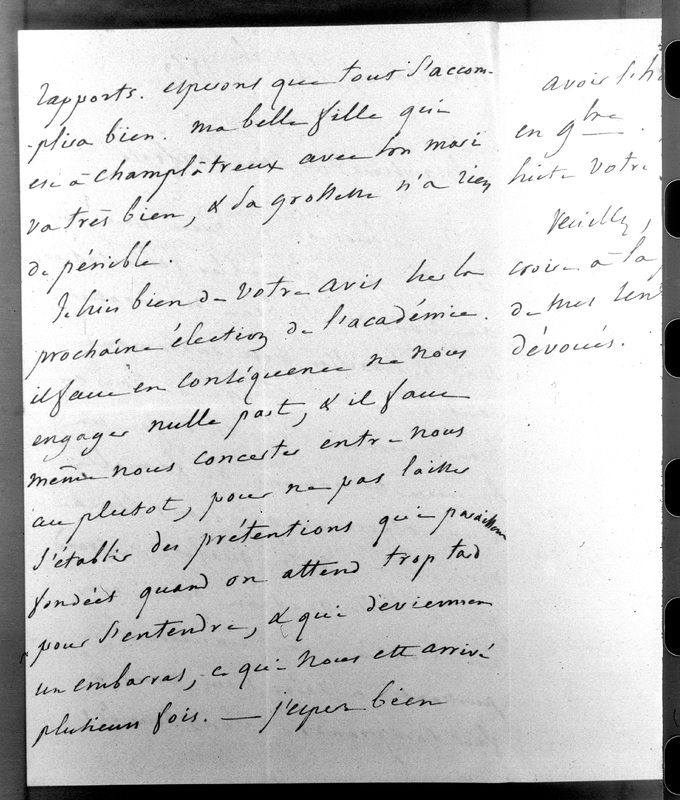 rapports. esperons que tout s'accom-
-plira bien. ma belle fille qui
est à champlâtreux avec son mari
va très bien, & sa grossesse n'a rien
de pénible.
Je suis bien de votre avis sur la
prochaine élection de l'académie.
il faut en conséquence ne nous
engager nulle part, & il faut
même nous concerter entre nous
au plutot, pour ne pas laisser
s'établir des prétentions qui paraissent
fondées quand on attend trop tard
pour s'entendre, & qui deviennent
un embarras, ce qui nous est arrivé
plusieurs fois. — j'espere bien
avoir l'h
en 9bre.
votre
Veuillez,
croire à la
de mes sen
dévoués.